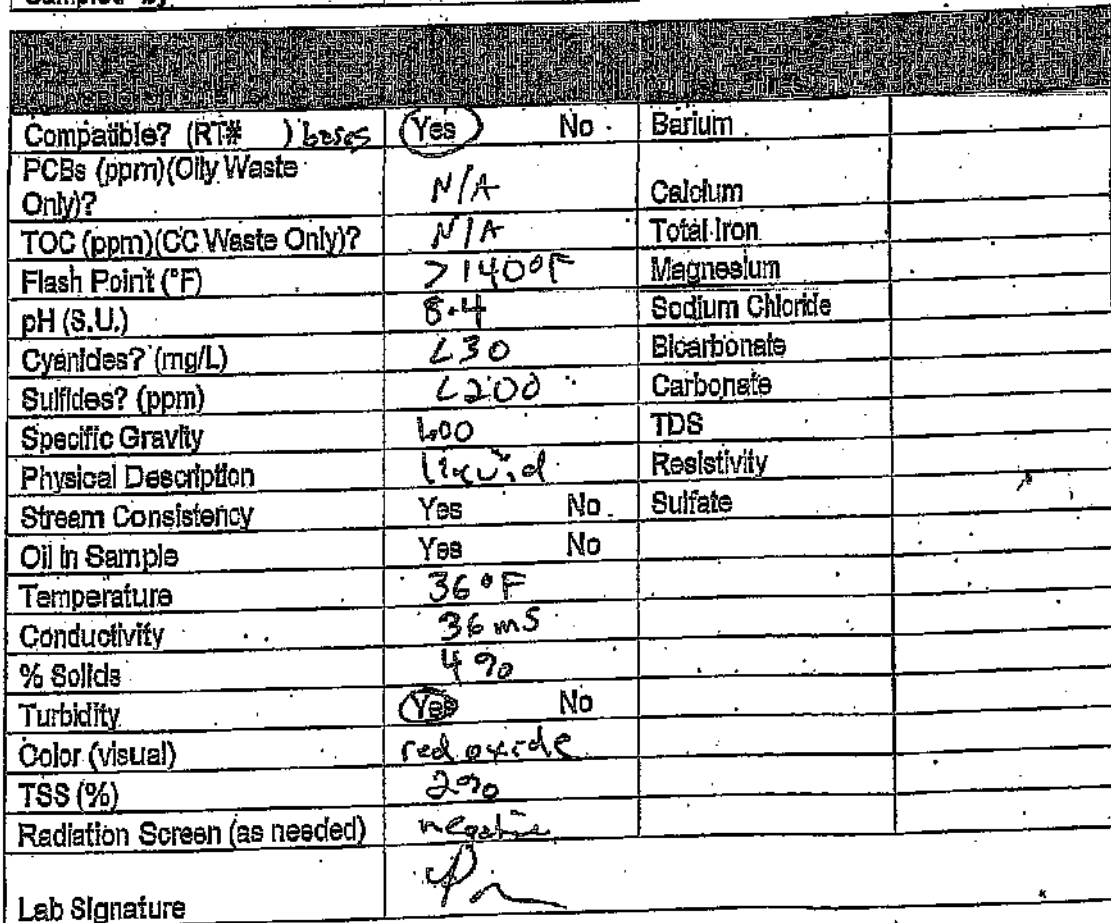 Sampled by
Compatible? (RT# ) bases Yes No Barium
PCBs (ppm)(Oily Waste
Only)? N/A Calcium
TOC (ppm)(CC Waste Only)? N/A Total Iron
Flash Point (°F) >140°F Magnesium
pH (S.U.) 8.4 Sodium Chloride
Cyanides? (mg/L) <30 Bicarbonate
Sulfides? (ppm) <200 Carbonate
Specific Gravity 1.00 TDS
Physical Description liquid Resistivity
Stream Consistency Yes No Sulfate
Oil in Sample Yes No
Temperature 36°F
Conductivity 36 mS
% Solids 4%
Turbidity Yes No
Color (visual) red oxide
TSS (%) 2%
Radiation Screen (as needed) negative
Lab Signature